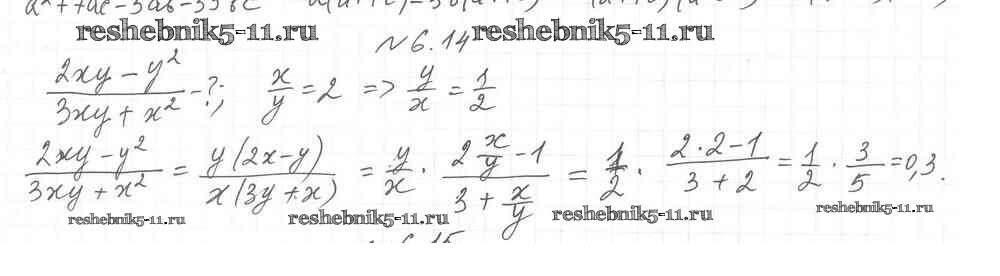 reshebnik5-11.ru №6.14 reshebnik5-11.ru
(2xy - y²)/(3xy + x²) - ?; x/y = 2 => y/x = 1/2
(2xy - y²)/(3xy + x²) = y(2x - y)/x(3y + x) = y/x · (2 x/y - 1)/(3 + x/y) = 1/2 · (2·2 - 1)/(3 + 2) = 1/2 · 3/5 = 0,3.
reshebnik5-11.ru reshebnik5-11.ru reshebnik5-11.ru reshebnik5-11.ru